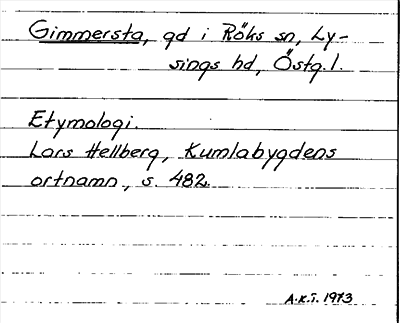 Gimmersta, gd i Röks sn, Ly-
sings hd, Östg. l.
Etymologi.
Lars Hellberg, Kumlabygdens
ortnamn, s. 482.
A.K.T. 1973